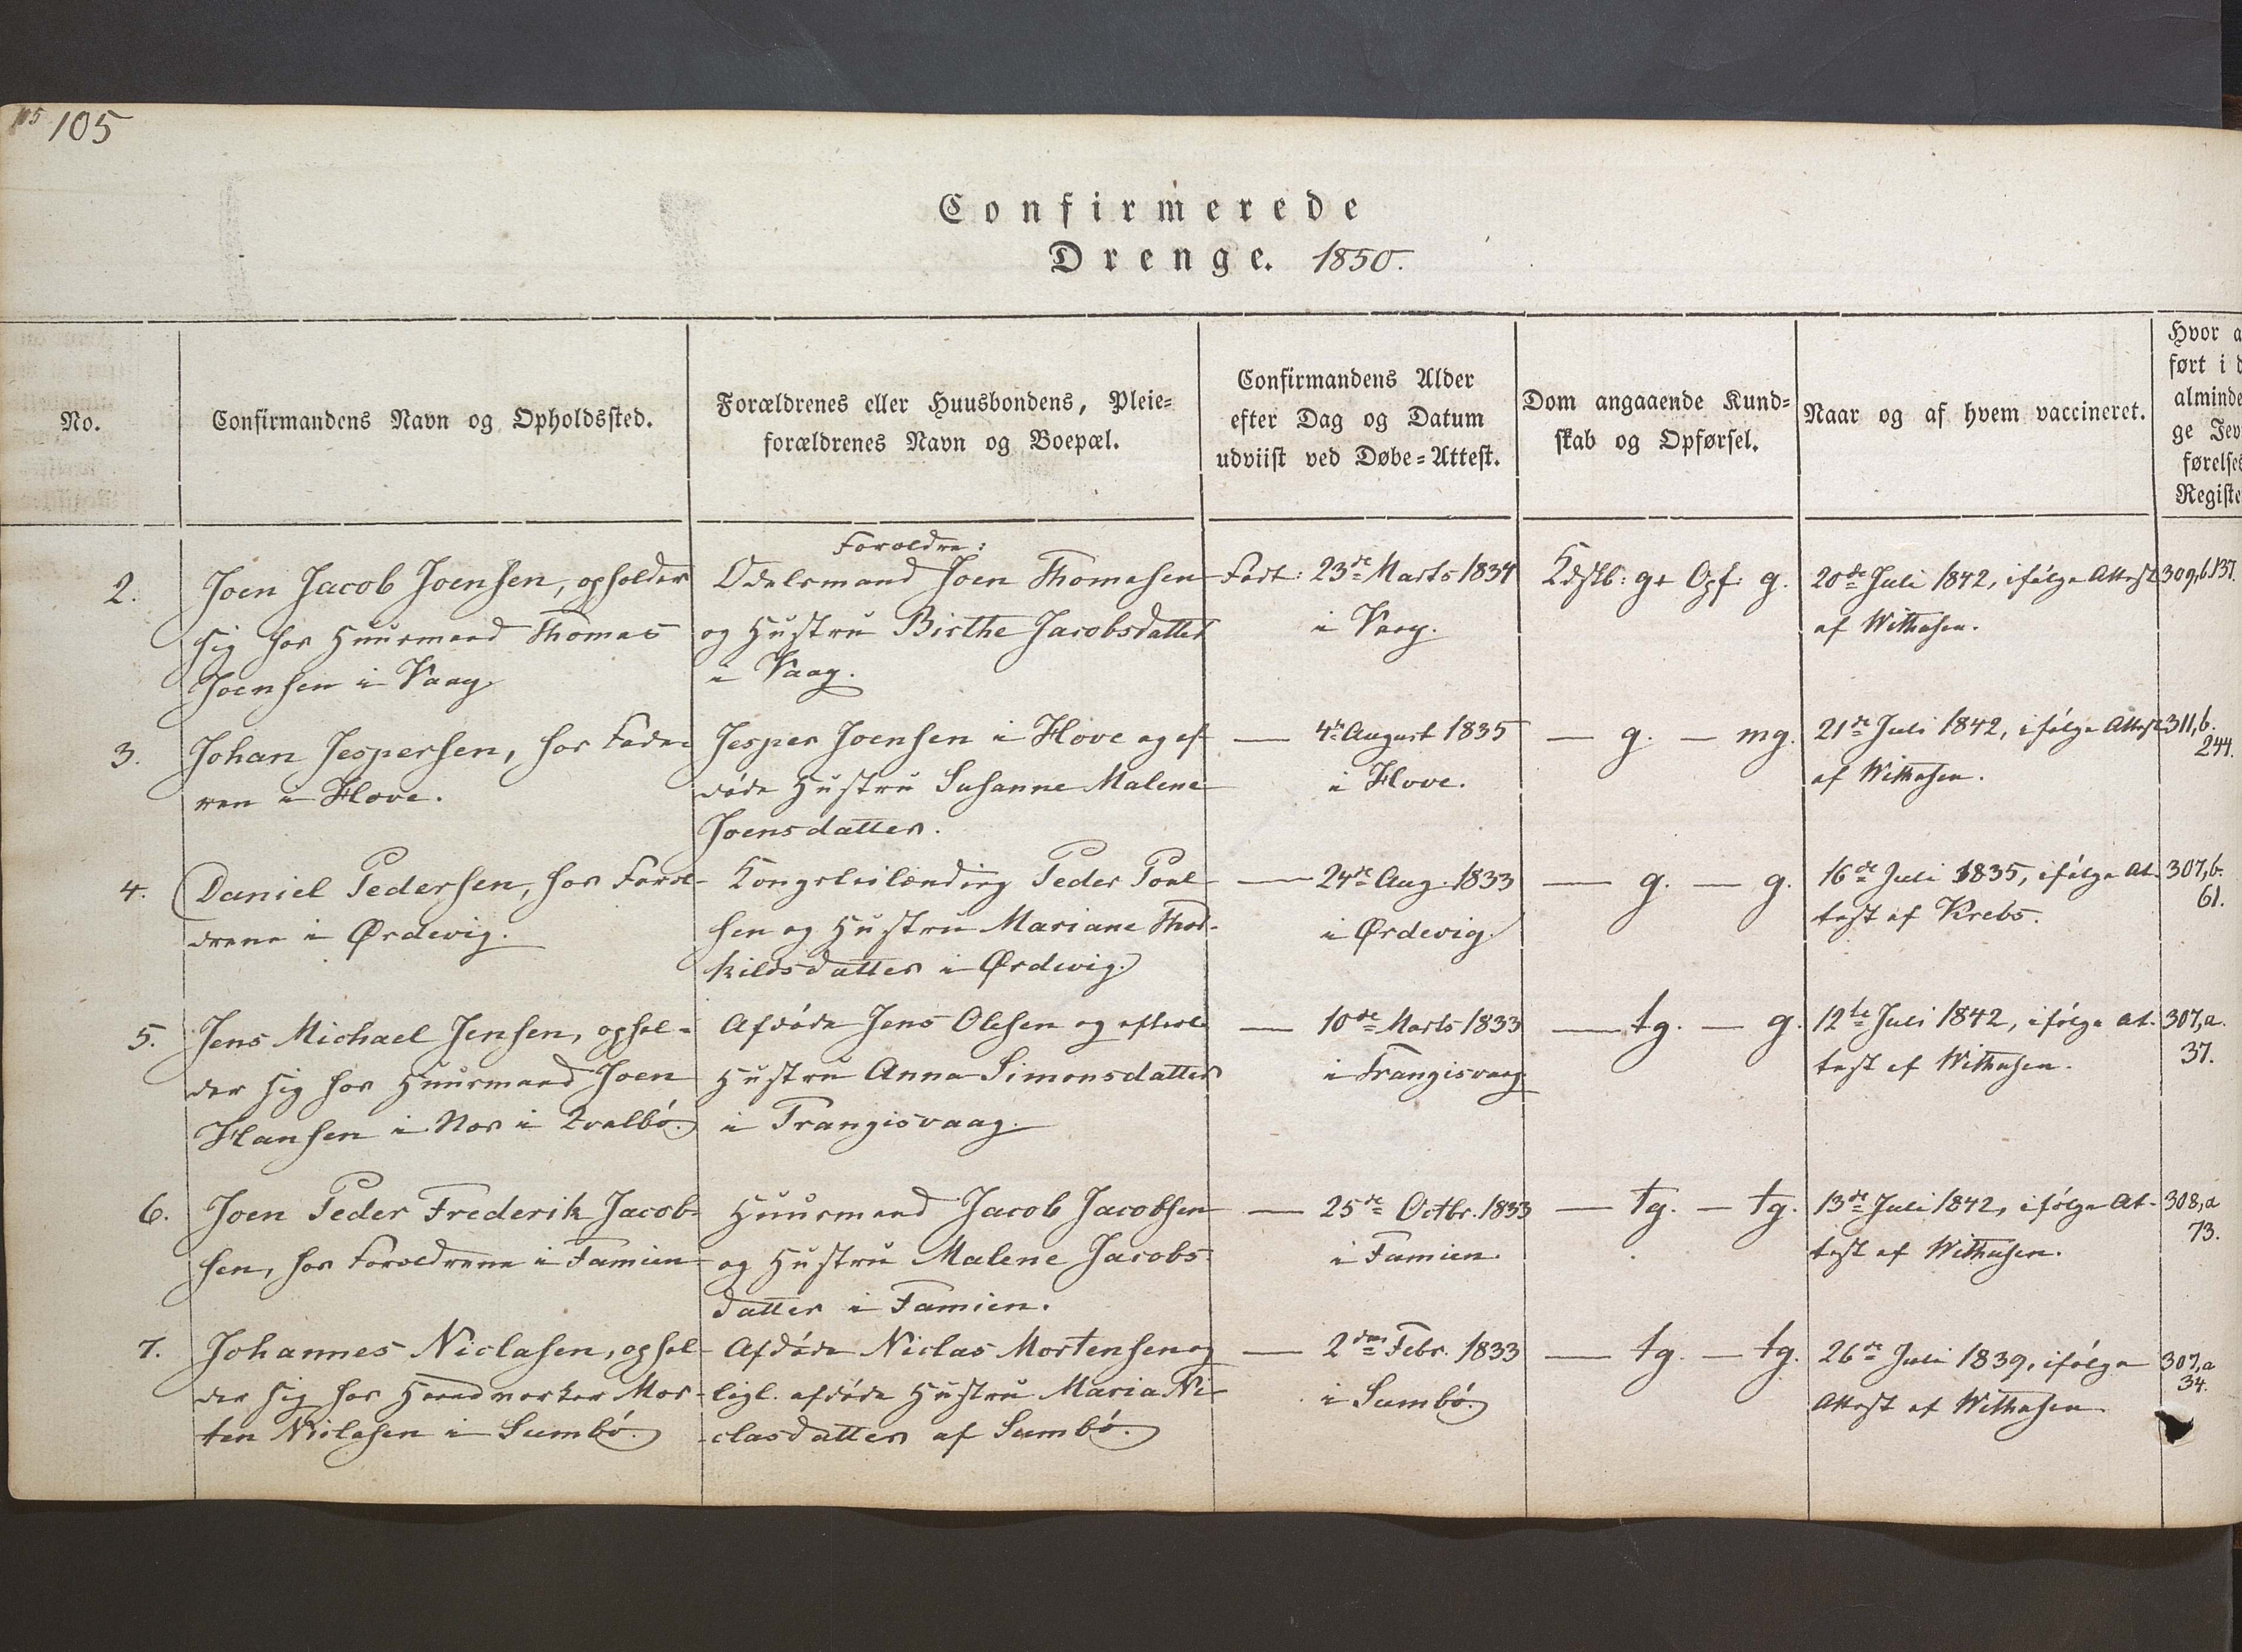 105 105
Confirmerede
Drenge. 1850.
No.
Confirmandens Navn og Opholdssted.
Forældrenes eller Huusbondens, Pleie=
forældrenes Navn og Boepæl.
Confirmandens Alder
efter Dag og Datum
udviist ved Døbe=Attest.
Dom angaaende Kund=
skab og Opførsel.
Naar og af hvem vaccineret.
Hvor a
ført i d
alminde
ge Jev
førelses
Registe
2.
Joen Jacob Joensen, opholder
sig hos Huusmand Thomas
Joensen i Vaag
Foroeldre:
Odelsmand Joen Thomasen
og Hustru Birthe Jacobsdatter
i Vaag.
Født: 23de Marts 1834
i Vaag.
Kdskb: g+ Opf: g.
20de Juli 1842, ifølge Attest
af Withusen.
309,b.137.
3.
Johan Jespersen, hos Fade-
ren i Hove.
Jesper Joensen i Hove og af-
døde Hustru Susanne Malene
Joensdatter.
— 4de August 1835
i Hove.
— g. — mg.
21de Juli 1842, ifølge Attest
af Withusen.
311,b.
244.
4.
Daniel Pedersen, hos Foroel-
drene i Ørdevig.
Kongsleilænding Peder Poul
sen og Hustru Mariane Thor-
kildsdatter i Ørdevig.
— 24de Aug. 1833
i Ørdevig.
— g. — g.
16de Juli 1835, ifølge At-
test af Krebs.
307,b.
61.
5.
Jens Michael Jensen, ophol-
der sig hos Huusmand Joen
Hansen i Nor i Qvalbø.
Afdøde Jens Olesen og efterl.
Hustru Anna Simonsdatter
i Trangisvaag.
— 10de Marts 1833
i Trangisvaag.
— tg. — g.
12te Juli 1842, ifølge At-
test af Withusen.
307,a.
37.
6.
Joen Peder Frederik Jacob-
sen, hos Foroeldrene i Famien
Huusmand Jacob Jacobsen
og Hustru Malene Jacobs-
datter i Famien.
— 25de Octbr. 1833
i Famien.
— tg. — tg.
13de Juli 1842, ifølge At-
test af Withusen.
308,a
73.
7.
Johannes Niclasen, ophol-
der sig hos Haandverker Mor-
ten Niclasen i Sumbø.
Afdøde Niclas Mortensen og
ligl. afdøde Hustru Maria Ni-
clasdatter af Sumbø.
— 2den Febr. 1833
i Sumbø.
— tg. — tg.
26de Juli 1839, ifølge
Attest af Withusen
307,a
34.